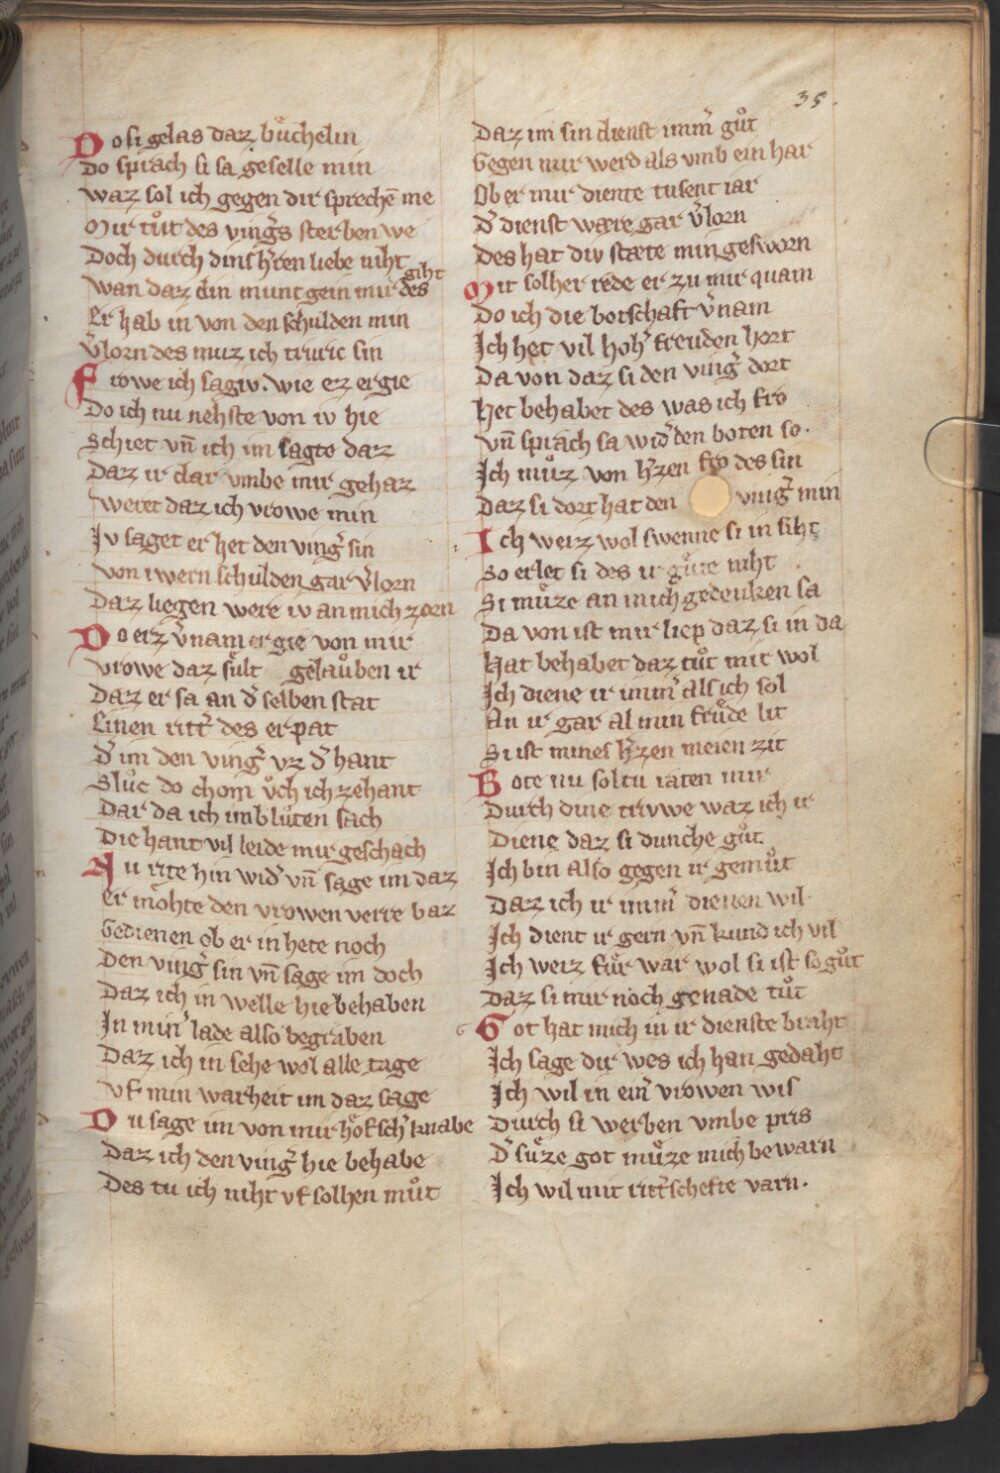 35.
Do si gelas daz bůchelin
Do sprach si sa geselle min
waz sol ich gegen dir sprechē me
Mir tůt des ving̉s sterben we
Doch durch dins h̉ren liebe niht
wan daz din munt gein mir des giht
Er hab in von den schulden min
v̉lorn des muz ich truric sin
Frowe ich sagiv. wie ez ergie
Do ich nu nehste von iv hie
Schiet vn̄ ich im sagte daz
Daz ir dar vmbe mir gehaz
weret daz ich vrowe min
Iv saget er het den ving̉ sin
von iwern schulden gar v̉lorn
Daz liegen were iv an mich zorn
Do erz v̉nam er gie von mir
vrowe daz sůlt gelauben ir
Daz er sa an d̉ selben stat
Einen ritt̉ des er pat
D̉ im den ving̉ vz d̉ hant
Slůc do chom ůch ich zehant
Dar da ich im blůten sach
Die hant vil leide mir geschach
Nu rite hin wid̉ vn̄ sage im daz
Er möhte den vrowen verre baz
Gedienen ob er in hete noch
Den ving̉ sin vn̄ sage im doch
Daz ich in welle hie behaben
In min̉ lade also begraben
Daz ich in sehe wol alle tage
vf min warheit im daz sage
Du sage im von mir höfsch̉ knabe
Daz ich den ving̉ hie behabe
Des tu ich niht vf solhen můt
Daz im sin dienst imm̉ gůt
Gegen mir werd als vmb ein har
Ob er mir diente tusent iar
D̉ dienst wære gar v̉lorn
Des hat div stæte min gesworn
Mit solher rede er zu mir quam
Do ich die botschaft v̉nam
Ich het vil hoh̉ freuden hort
Da von daz si den ving̉ dort
Het behabet des was ich fro
vn̄ sprach sa wid̉ den boten so.
Ich můz von h̉zen fro des sin
Daz si dort hat den ving̉ min
Ich weiz wol swenne si in siht
So erlet si des ir gůte niht
Si můze an mich gedenken sa
Da von ist mir liep daz si in da
Hat behabet daz tůt mir wol
Ich diene ir imm̉ als ich sol
An ir gar al min frůde lit
Si ist mines h̉zen meien zit
Bote nu soltu raten mir
Durch dine trivwe waz ich ir
Diene daz si dunche gůt
Ich bin also gegen ir gemůt
Daz ich ir imm̉ dienen wil
Ich dient ir gern vn̄ kund ich vil
Ich weiz fůr war wol si ist so gůt
Daz si mir noch genade tůt
Got hat mich in ir dienste braht
Ich sage dir wes ich han gedaht
Ich wil in ein̉ vrowen wis
Durch si werben vmbe pris
D̉ sůze got můze mich bewarn
Ich wil mit ritt̉schefte varn.